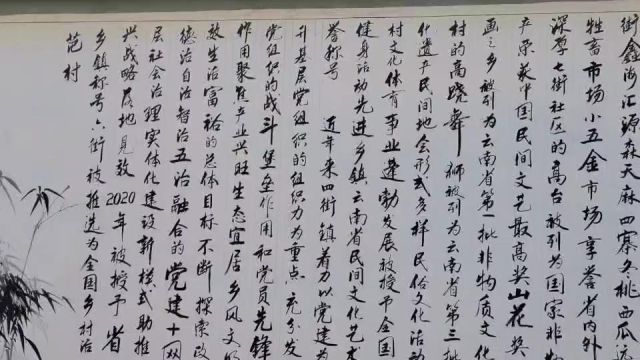 街鑫湖汇源森天麻四寨冬桃西瓜远
牲畜市场小五金市场享誉省内外
深厚七街社区的高台被列为国家非物
产荣获中国民间文艺最高奖山花奖
画之乡被列为云南省第一批非物质文化
村的高跷舞狮被列为云南省第三批
化遗产民间地会形式多样民俗文化活动
村文化体育事业蓬勃发展被授予全国
健身活动先进乡镇云南省民间文化艺术
誉称号 近年来四街镇着力以党建为
升基层党组织的组织力为重点充分发
党组织的战斗堡垒作用和党员先锋
作用聚焦产业兴旺生态宜居乡风文明
效生活富裕的总体目标不断探索改
德治自治智治五治融合的党建十网
层社会治理实体化建设新模式助推
兴战略落地见效2020年被授予省
乡镇称号六街被推选为全国乡村治
范村